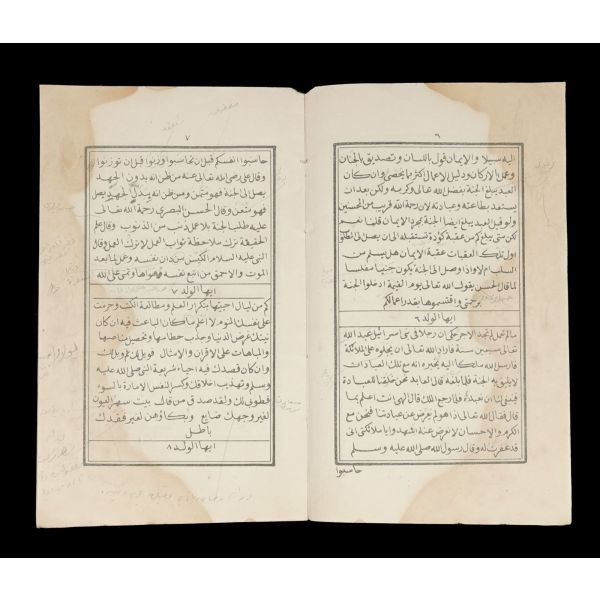 ٦
اليه سبيلا والايمان قول باللسان وتصديق بالجنان
وعمل بالاركان ودليل الاعمال اكثر مما يحصى وان كان
العبد يبلغ الجنة بفضل الله تعالى وكرمه ولكن بعد ان
يستعد بطاعته وعبادته لان رحمة الله قريب من المحسنين
ولو قيل العبد يبلغ ايضا الجنة بمجرد الايمان قلنا نعم
لكن متى يبلغ كم من عقبة كؤدة تستقبله الى ان يصل الى المطلوب
اول تلك العقبات عقبة الايمان هل يسلم من
السلب ام لا واذا وصل الى الجنة يكون جنيبا مفلسا
لما قال الحسن يقول الله تعالى يوم القيمة ادخلوا الجنة
برحمتى واقتسموها بقدر اعمالكم
ايها الولد ٦
مالم تعمل لم تجد الاجر حكى ان رجلا فى بنى اسرائيل عبد الله
تعالى سبعين سنة فاراد الله تعالى ان يجلوه على الملائكة
فارسل الله ملكا اليه يخبره انه مع تلك العبادات
لا يليق به الجنة فلما بلغه قال العابد نحن خلقنا للعبادة
فينبغى لنا ان نعبده فلما رجع الملك قال الهى انت اعلم بما
قال فقال الله تعالى اذا هو لم يعرض عن عبادتنا فنحن مع
الكرم والاحسان لا نعرض عنه اشهدوا يا ملائكتى انى
قد غفرت له وقال رسول الله صلى الله عليه وسلم
حاسبوا
٧
حاسبوا انفسكم قبل ان تحاسبوا وزنوا قبل ان توزنوا
وقال على رضى الله تعالى عنه من ظن انه بدون الجهد
يصل الى الجنة فهو متمن ومن ظن انه ببذل الجهد يصل
فهو متعن وقال الحسن البصرى رحمة الله تعالى
عليه طلب الجنة بلا عمل ذنب من الذنوب وقال علم
الحقيقة ترك ملاحظة ثواب العمل لا ترك العمل وقال
النبى عليه السلام الكيس من دان نفسه وعمل لما بعد
الموت والاحمق من اتبع نفسه هواها وتمنى على الله
ايها الولد ٧
كم من ليال احييتها بتكرار العلم ومطالعة الكتب وحرمت
على نفسك النوم لا اعلم ما كان الباعث فيه ان كان
نيتك غرض الدنيا وجذب حطامها وتحصيل مناصبها
والمباهات على الاقران والامثال فويل لك ثم ويل لك
وان كان قصدك فيه احياء شريعة النبى صلى الله عليه
وسلم وتهذيب اخلاقك وكسر النفس الامارة بالسوء
فطوبى لك ولقد صدق من قال بيت سهر العيون
لغير وجهك ضايع وبكاؤهن لغير فقدك
باطل
ايها الولد ٨